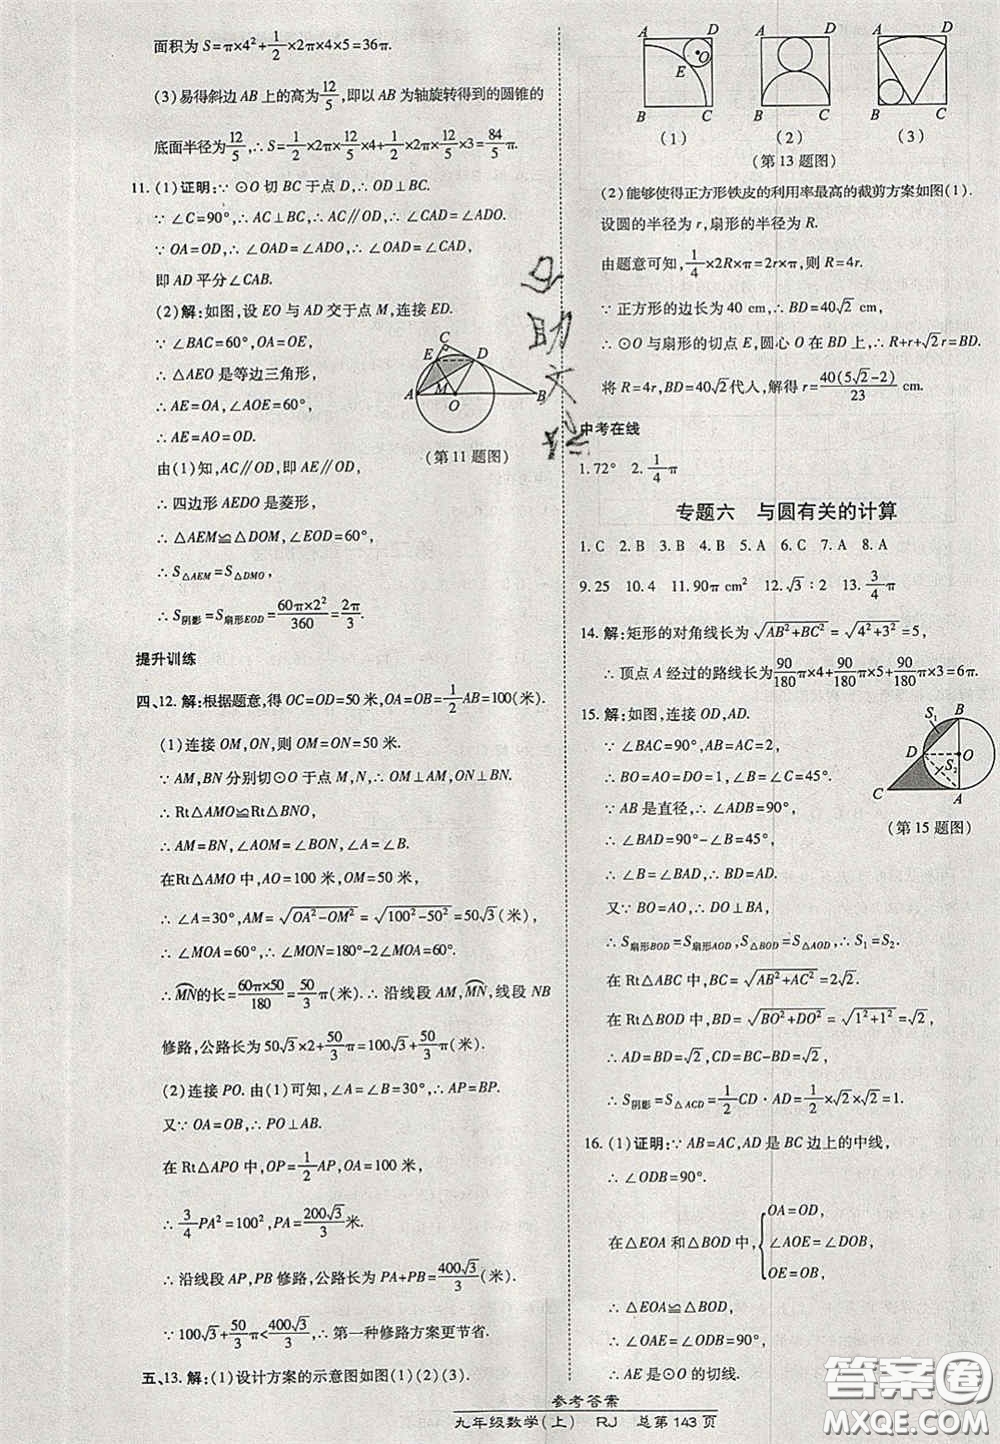 面积为 S=π×4²+1/2×2π×4×5=36π.
(3)易得斜边 AB 上的高为12/5,即以 AB 为轴旋转得到的圆锥的
底面半径为12/5,∴S=1/2×2π×12/5×4+1/2×2π×12/5×3=84/5π.
11.(1)证明:∵⊙O 切 BC 于点 D,∴OD⊥BC.
∵∠C=90°,∴AC⊥BC,∴AC∥OD,∴∠CAD=∠ADO.
∵OA=OD,∴∠OAD=∠ADO,∴∠OAD=∠CAD,
即 AD 平分∠CAB.
(2)解:如图,设 EO 与 AD 交于点 M,连接 ED.
∵∠BAC=60°,OA=OE,
∴△AEO 是等边三角形,
∴AE=OA,∠AOE=60°,
∴AE=AO=OD.
由(1)知,AC∥OD,即 AE∥OD,
∴四边形 AEDO 是菱形,
∴△AEM≌△DMO,∠EOD=60°,
∴S△AEM=S△DMO,
∴S阴影=S扇形EOD=60π×2²/360=2π/3.
C
E
D
A
M
O
B
(第11题图)
提升训练
四、12.解:根据题意,得 OC=OD=50 米,OA=OB=1/2AB=100(米).
(1)连接 OM,ON,则 OM=ON=50 米.
∵AM,BN 分别切⊙O 于点 M,N,∴OM⊥AM,ON⊥BN,
∴Rt△AMO≌Rt△BNO,
∴AM=BN,∠AOM=∠BON,∠A=∠B.
在Rt△AMO 中,OA=100 米,OM=50 米,
∴∠A=30°,AM=√(OA²-OM²)=√(100²-50²)=50√3(米),
∴∠MOA=60°,∴∠MON=180°-2∠MOA=60°,
∴MN的长=60π×50/180=50/3π(米).∴沿线段 AM,MN,线段 NB
修路,公路长为50√3×2+50/3π=100√3+50/3π(米).
(2)连接 PO.由(1)可知,∠A=∠B=30°,∴AP=BP.
又∵OA=OB,∴PO⊥AB.
在 Rt△APO 中,OP=1/2AP,OA=100 米,
∴3/4PA²=100²,PA=200√3/3米.
∴沿线段 AP,PB 修路,公路长为 PA+PB=400√3/3(米).
∵100√3+50/3π<400√3/3,∴第一种修路方案更节省.
五、13.解:(1)设计方案的示意图如图(1)(2)(3).
A D A D A D
O
E
B C B C B C
(1) (2) (3)
(第13题图)
(2)能够使得正方形铁皮的利用率最高的裁剪方案如图(1).
设圆的半径为 r,扇形的半径为 R.
由题意可知,1/4×2R×π=2r×π,则 R=4r.
∵正方形的边长为 40 cm,∴BD=40√2 cm.
∵⊙O 与扇形的切点 E,圆心 O 在 BD 上,∴R+r+√2r=BD.
将 R=4r,BD=40√2代人,解得 r=40(5√2-2)/23 cm.
中考在线
1.72° 2.1/4π
专题六 与圆有关的计算
1.C 2.B 3.B 4.B 5.A 6.C 7.A 8.A
9.25 10.4 11.90π cm² 12.√3∶2 13.3/4π
14.解:矩形的对角线长为√(AB²+BC²)=√(4²+3²)=5,
∴顶点 A 经过的路线长为90/180π×4+90/180π×5+90/180π×3=6π.
15.解:如图,连接 OD,AD.
∵∠BAC=90°,AB=AC=2,
∴BO=AO=1,∠B=∠C=45°.
∵AB 是直径,∴∠ADB=90°,
∴∠BAD=90°-∠B=45°,
∴∠B=∠BAD,∴BD=AD.
又∵BO=AO,∴DO⊥BA,
∴S扇形BOD=S扇形AOD,S△BOD=S△AOD,∴S₁=S₂.
在 Rt△ABC 中,BC=√(AB²+AC²)=2√2.
在 Rt△BOD 中,BD=√(BO²+DO²)=√(1²+1²)=√2,
∴AD=BD=√2,CD=BC-BD=√2,
∴S阴影=S△ACD=1/2CD·AD=1/2×√2×√2=1.
B
S₁
D
O
S₂
C
A
(第15题图)
16.(1)证明:∵AB=AC,AD 是 BC 边上的中线,
∴∠ODB=90°.
在△EOA 和△BOD 中,{OA=OD,
∠AOE=∠DOB,
OE=OB,
∴△EOA≌△BOD,
∴∠OAE=∠ODB=90°,
∴AE 是⊙O 的切线.
参考答案
九年级数学(上) RJ 总第 143 页
答案圈
MXQE.COM